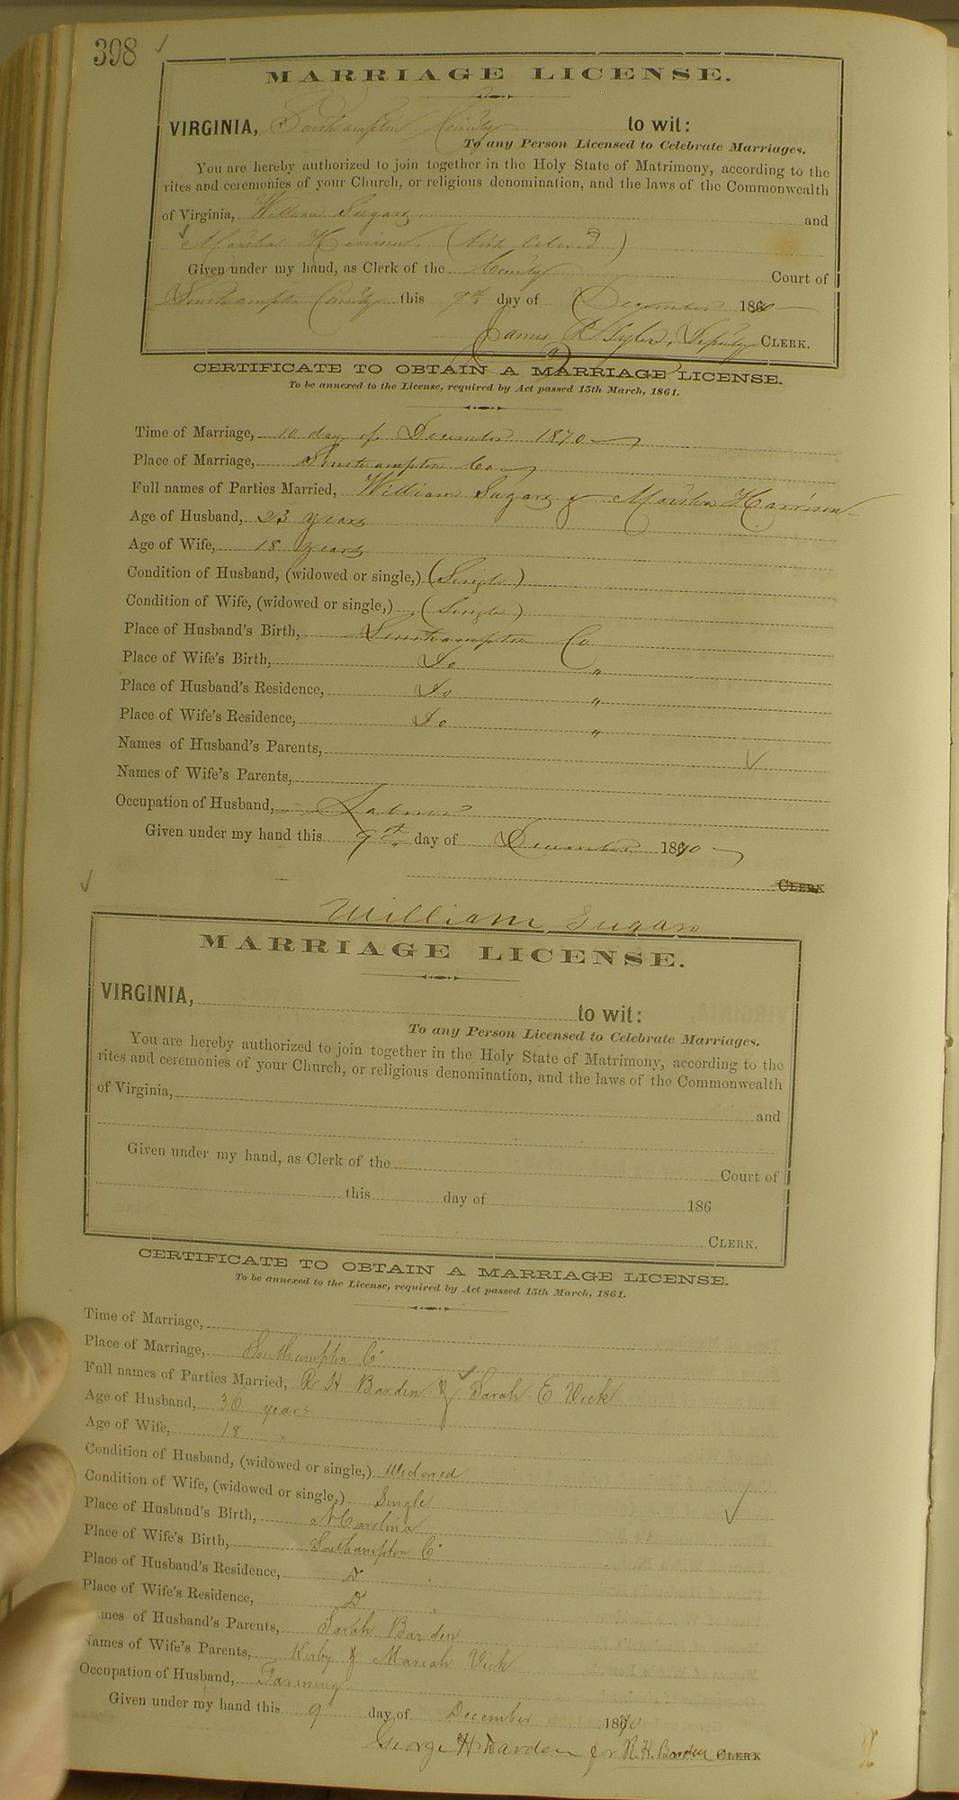 398
MARRIAGE LICENSE.
VIRGINIA, Southampton County to wit:
To any Person Licensed to Celebrate Marriages.
You are hereby authorized to join together in the Holy State of Matrimony, according to the
rites and ceremonies of your Church, or religious denomination, and the laws of the Commonwealth
of Virginia, William Sugars and
Harrison
Given under my hand, as Clerk of the County Court of
Southampton County this 9th day of December 1870
James R Tyler, Deputy CLERK.
CERTIFICATE TO OBTAIN A MARRIAGE LICENSE.
To be annexed to the License, required by Act passed 15th March, 1861.
Time of Marriage, 10 day of December 1870
Place of Marriage, Southampton Co
Full names of Parties Married, William Sugars & Harrison
Age of Husband, 23 years
Age of Wife, 18 years
Condition of Husband, (widowed or single,) (Single)
Condition of Wife, (widowed or single,) (Single)
Place of Husband's Birth, Southampton Co
Place of Wife's Birth, Do "
Place of Husband's Residence, Do "
Place of Wife's Residence, Do "
Names of Husband's Parents,
Names of Wife's Parents,
Occupation of Husband, Laborer
Given under my hand this 9th day of December 1870
CLERK
William Sugars
MARRIAGE LICENSE.
VIRGINIA, to wit:
To any Person Licensed to Celebrate Marriages.
You are hereby authorized to join together in the Holy State of Matrimony, according to the
rites and ceremonies of your Church, or religious denomination, and the laws of the Commonwealth
of Virginia, and
Given under my hand, as Clerk of the Court of
this day of 186
CLERK.
CERTIFICATE TO OBTAIN A MARRIAGE LICENSE.
To be annexed to the License, required by Act passed 15th March, 1861.
Time of Marriage,
Place of Marriage, Southampton Co
Full names of Parties Married, R H Barden & Sarah E Vick
Age of Husband, 36 years
Age of Wife, 18 "
Condition of Husband, (widowed or single,) Widowed
Condition of Wife, (widowed or single,) Single
Place of Husband's Birth, N Carolina
Place of Wife's Birth, Southampton Co
Place of Husband's Residence, Do
Place of Wife's Residence, Do
Names of Husband's Parents, Sarah Barden
Names of Wife's Parents, Kirby & Mariah Vick
Occupation of Husband, Farming
Given under my hand this 9 day of December 1870
George H Barden for R. H. Barden CLERK